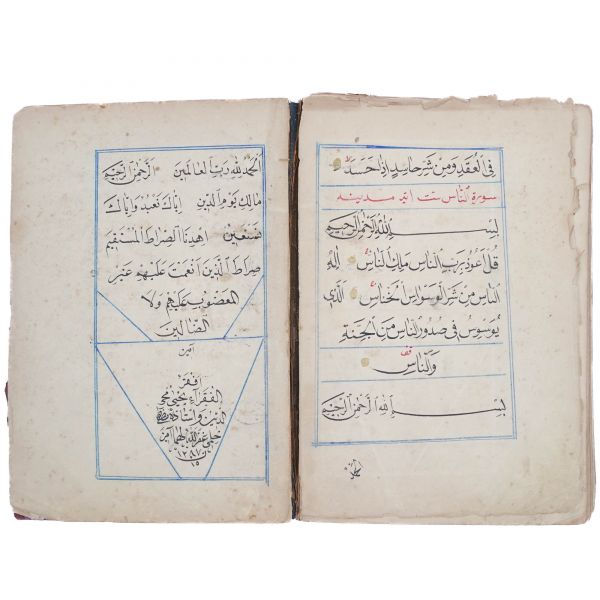 فى العقد ومن شر حاسد اذا حسد
سورة الناس ست ايت مدينه
بسم الله الرحمن الرحيم
قل اعوذ برب الناس ملك الناس اله
الناس من شر الوسواس الخناس الذى
يوسوس فى صدور الناس من الجنة
والناس
بسم الله الرحمن الرحيم
الحمد لله رب العالمين الرحمن الرحيم
مالك يوم الدين اياك نعبد واياك
نستعين اهدنا الصراط المستقيم
صراط الذين انعمت عليهم غير
المغضوب عليهم ولا
الضالين
آمين
افقر
الفقرآء يحيى محى
الدين واستاذه
خلقى غفر الله لهما آمين
١٢٨٧
١٥